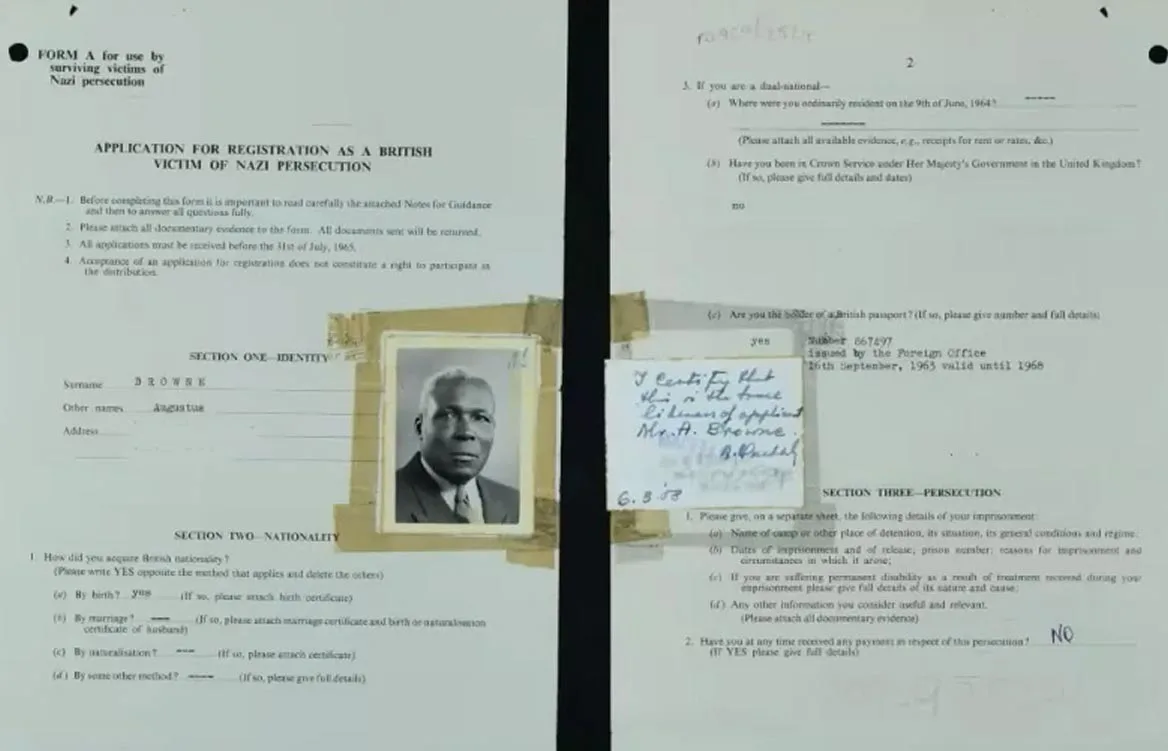 FORM A for use by
surviving victims of
Nazi persecution
APPLICATION FOR REGISTRATION AS A BRITISH
VICTIM OF NAZI PERSECUTION
N.B.—1. Before completing this form it is important to read carefully the attached Notes for Guidance
and then to answer all questions fully.
2. Please attach all documentary evidence to the form. All documents sent will be returned.
3. All applications must be received before the 31st of July, 1965.
4. Acceptance of an application for registration does not constitute a right to participate in
the distribution.
SECTION ONE—IDENTITY
Surname BROWNE
Other names Augustus
Address
SECTION TWO—NATIONALITY
1. How did you acquire British nationality?
(Please write YES opposite the method that applies and delete the others)
(a) By birth? yes (If so, please attach birth certificate)
(b) By marriage? — (If so, please attach marriage certificate and birth or naturalisation
certificate of husband)
(c) By naturalisation? --- (If so, please attach certificate)
(d) By some other method? ---- (If so, please give full details)
2
3. If you are a dual-national—
(a) Where were you ordinarily resident on the 9th of June, 1964? ----
(Please attach all available evidence, e.g., receipts for rent or rates, &c.)
(b) Have you been in Crown Service under Her Majesty's Government in the United Kingdom?
(If so, please give full details and dates)
no
(c) Are you the holder of a British passport? (If so, please give number and full details)
yes Number 867497
issued by the Foreign Office
16th September, 1963 valid until 1968
I Certify that
this is the true
likeness of applicant
Mr. A. Browne.
6.3
SECTION THREE—PERSECUTION
1. Please give, on a separate sheet, the following details of your imprisonment:
(a) Name of camp or other place of detention, its situation, its general conditions and regime;
(b) Dates of imprisonment and of release; prison number; reasons for imprisonment and
circumstances in which it arose;
(c) If you are suffering permanent disability as a result of treatment received during your
imprisonment please give full details of its nature and cause;
(d) Any other information you consider useful and relevant.
(Please attach all documentary evidence)
2. Have you at any time received any payment in respect of this persecution? NO
(If YES please give full details)